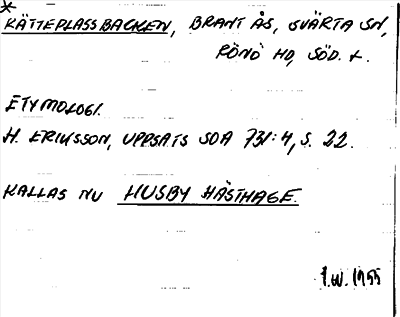 *
KÄTTEPLASSBACKEN, BRANT ÅS, SVÄRTA SN,
RÖNÖ HD, SÖD. L.
ETYMOLOGI.
H. ERIKSSON, UPPSATS SOA 731:4, S. 22.
KALLAS NU HUSBY HÄSTHAGE.
I.W. 1955